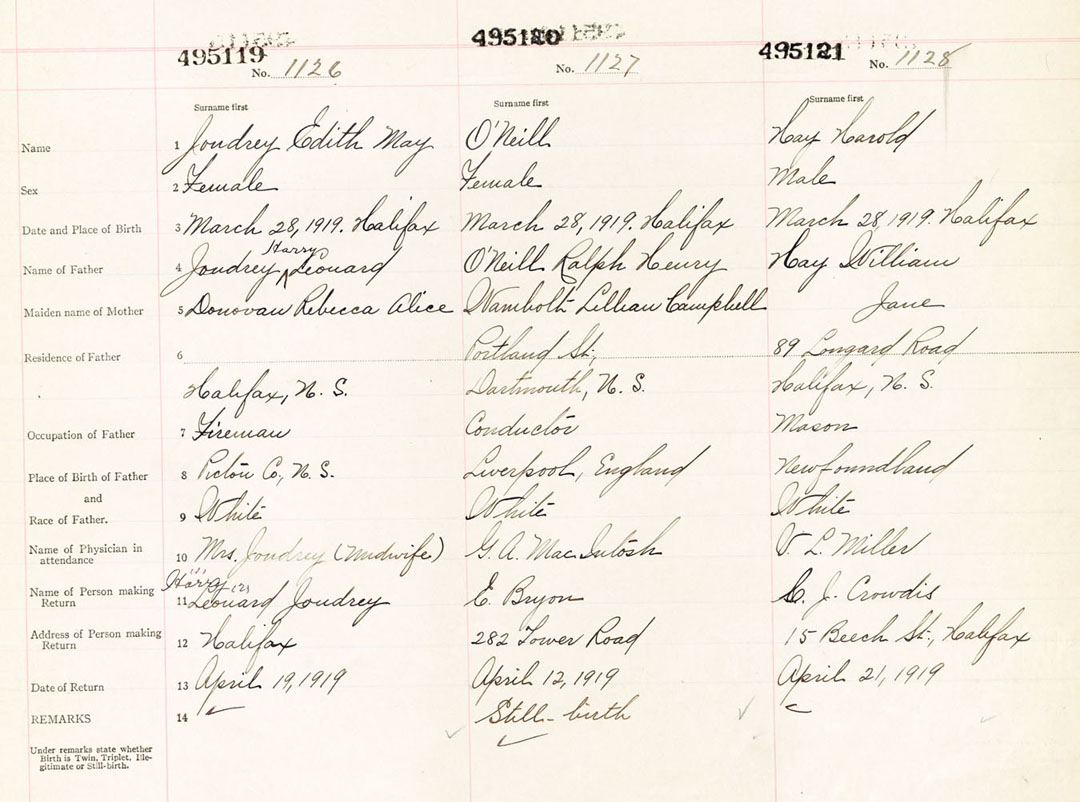 495119 495120 495121
No. 1126 No. 1127 No. 1128
Surname first Surname first Surname first
Name 1 Joudrey Edith May O'Neill Hay Harold
Sex 2 Female Female Male
Date and Place of Birth 3 March 28, 1919. Halifax March 28, 1919. Halifax March 28, 1919. Halifax
Harry
Name of Father 4 Joudrey ^ Leonard O'Neill Ralph Henry Hay William
Maiden name of Mother 5 Donovan Rebecca Alice Wambolt Lillian Campbell Jane
Residence of Father 6 Portland St., 89 Longard Road
Halifax, N. S. Dartmouth, N. S. Halifax, N. S.
Occupation of Father 7 Fireman Conductor Mason
Place of Birth of Father 8 Pictou Co, N. S. Liverpool, England Newfoundland
and
Race of Father. 9 White White White
Name of Physician in
attendance 10 Mrs. Joudrey (Midwife) G. A. MacIntosh V. L. Miller
Harry (1) (2)
Name of Person making
Return 11 Leonard Joudrey E. Bryon C. J. Crowdis
Address of Person making
Return 12 Halifax 282 Tower Road 15 Beech St., Halifax
Date of Return 13 April 19, 1919 April 12, 1919 April 21, 1919
REMARKS 14 Still-birth
Under remarks state whether
Birth is Twin, Triplet, Ille-
gitimate or Still-birth.